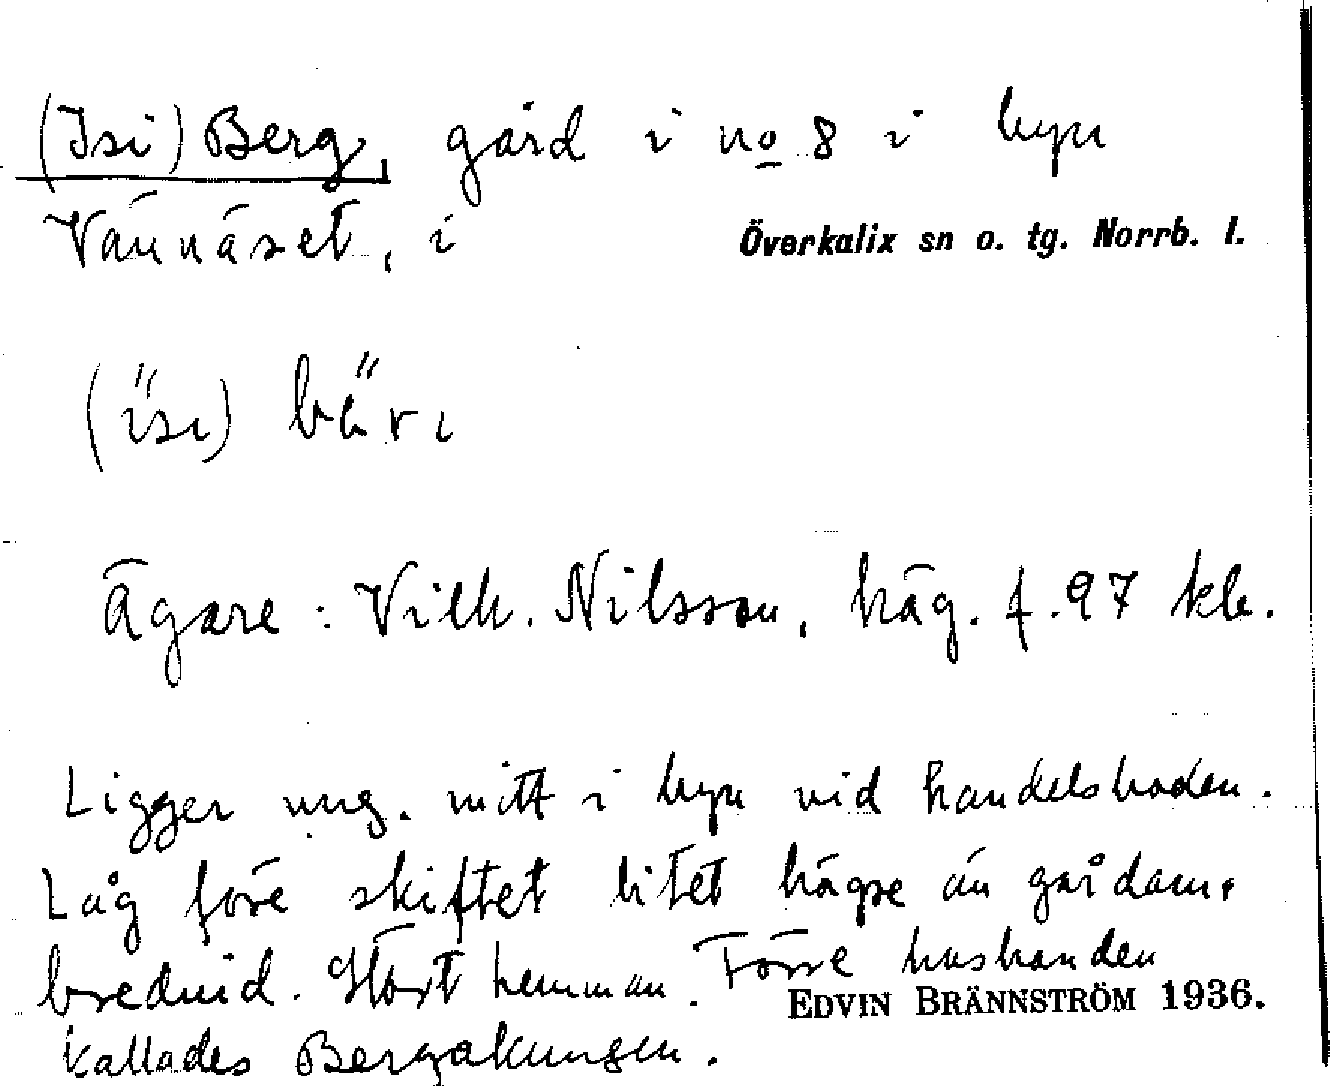 (Isi) Berg, gård i no 8 i byn
Vännäset, i Överkalix sn o. tg. Norrb. l.
(isi) bäri
Ägare: Vilh. Nilsson, häg. f. 97 kb.
Ligger ung. mitt i byn vid handelsboden.
Låg före skiftet litet högre än gårdarna
bredvid. Stort hemman. Förre husbonden
EDVIN BRÄNNSTRÖM 1936.
kallades Bergakungen.